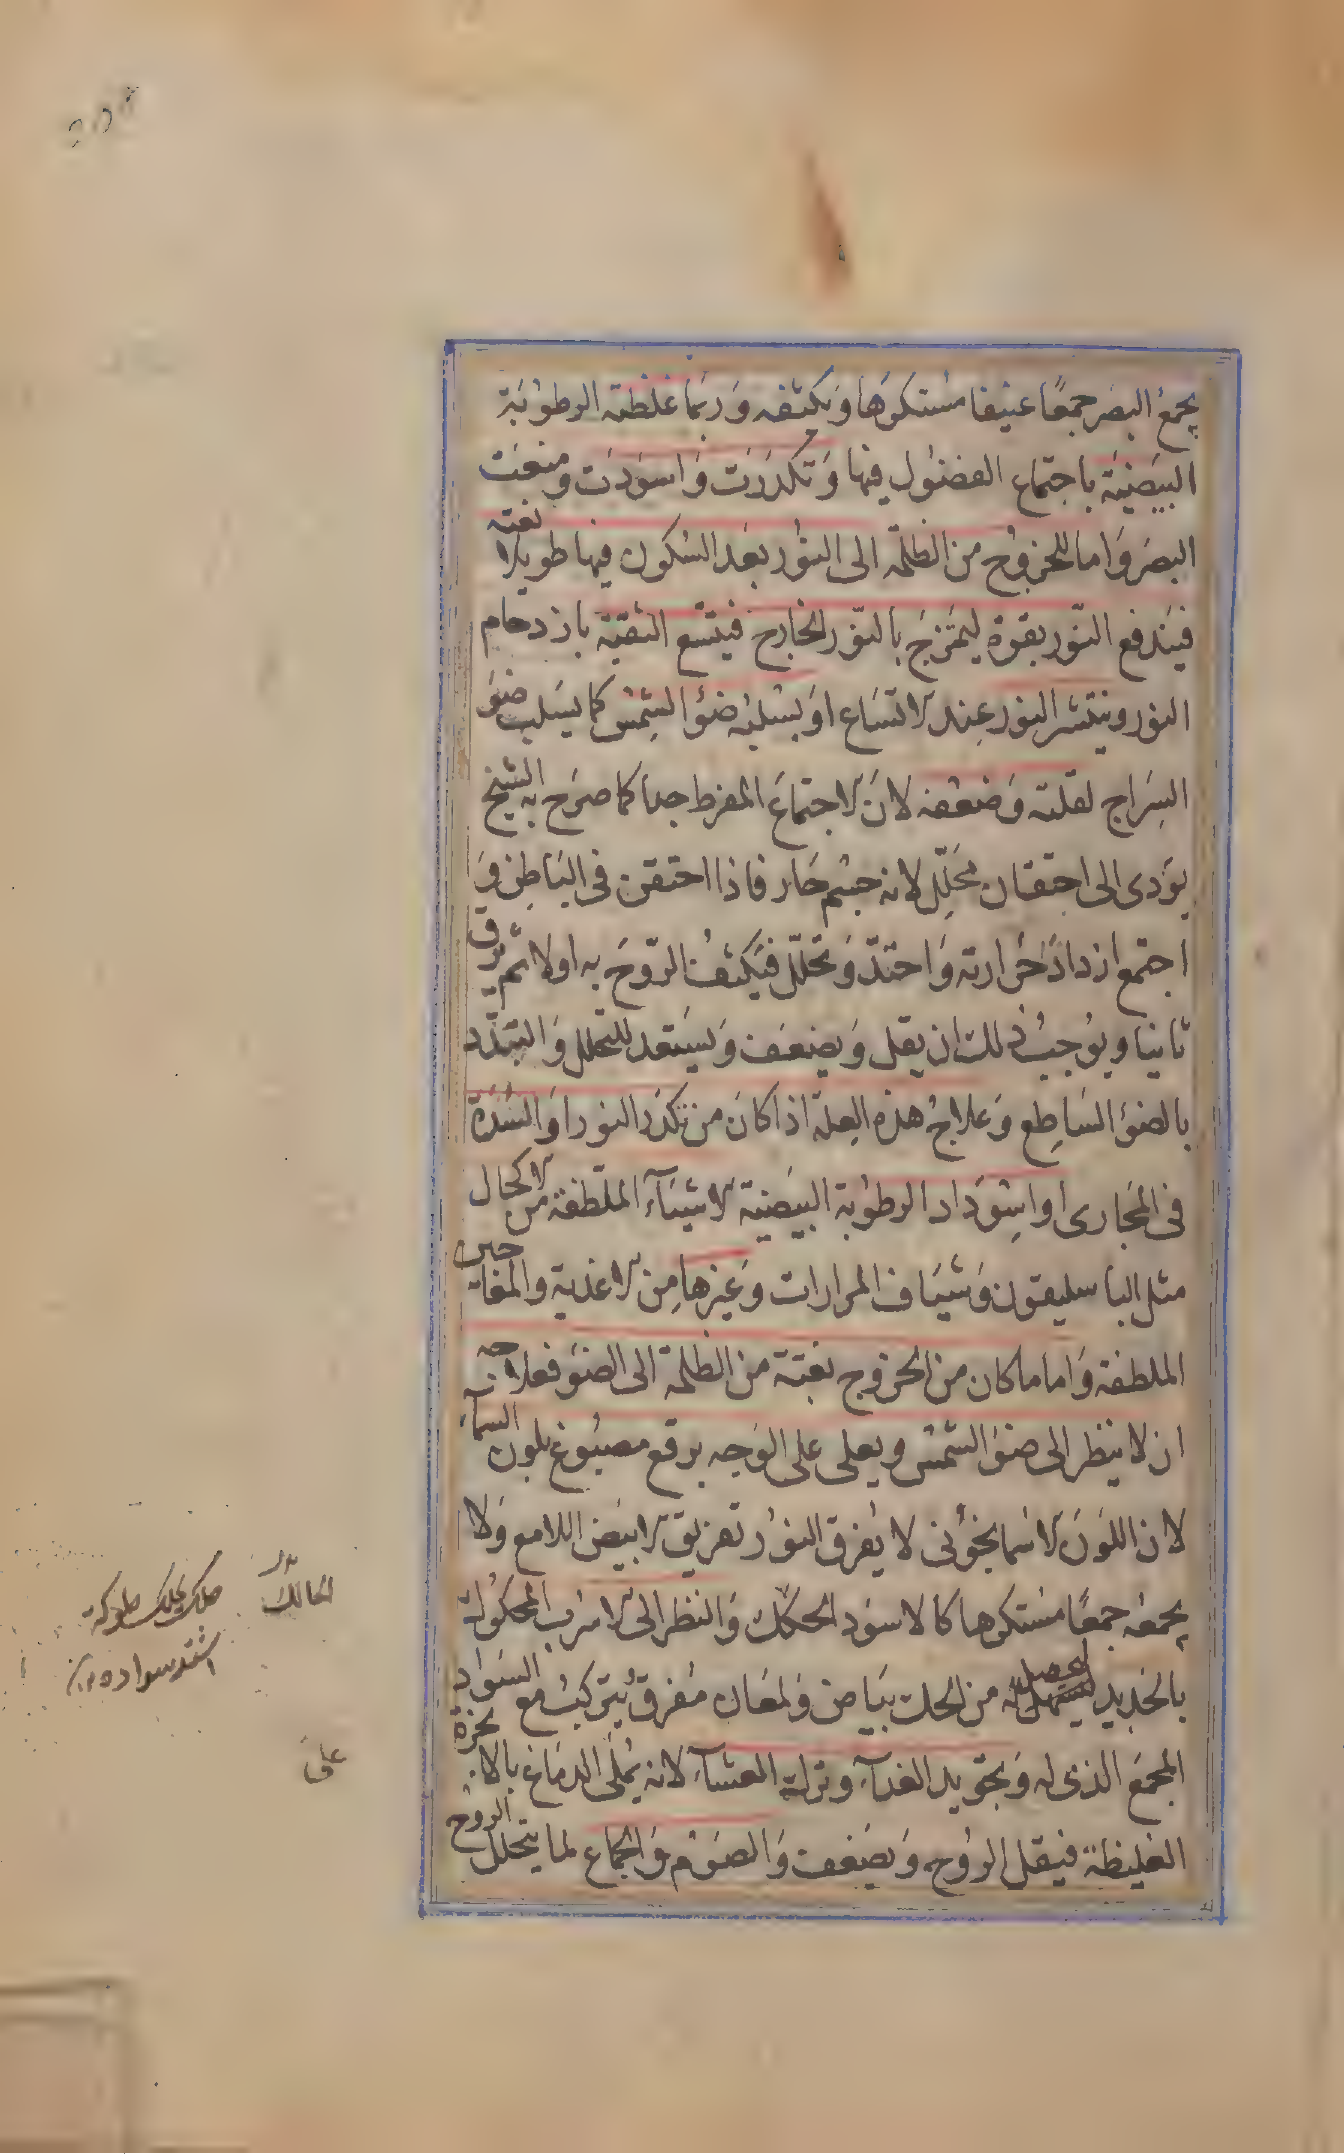 يجمع البصر جمعًا عنيفا مستكرها و يكثفه و ربما غلظته الرطوبة
البيضية باجتماع الفضول فيها و تكدرت و اسودت و منعت
البصر و اما للخروج من الظلمة الى النور بعد السكون فيها طويلا بغتة
فيندفع النور بقوة ليمتزج بالنور الخارج فيتسع الثقبة بازدحام
النور و ينتشر النور عند الاتساع او يسلبه ضوء الشمس كما يسلب ضوء
السراج لقلته و ضعفه لان الاجتماع المفرط جدا كما صرح به الشيخ
يؤدى الى احتقان محلل لانه جسم حار فاذا احتقن فى الباطن و
اجتمع ازداد حرارته و احتد و تحلل فيكثف الروح به اولا ثم يرق
ثانيا و يوجب ذلك ان يقل و يضعف و يستعد للتحلل و التبدد
بالضوء الساطع و علاج هذه العلة اذا كان من تكدر النور او السدة
فى المجارى او اسوداد الرطوبة البيضية الاشياء الملطفة من الاكحال
مثل الباسليقون و شياف المرارات و غيرها من الاغذية و المعاجين
الملطفة و اما ما كان من الخروج بغتة من الظلمة الى الضوء فعلاجه
ان لا ينظر الى ضوء الشمس و يعلى على الوجه برقع مصبوغ بلون السماء
لان اللون الاسمانجونى لا يفرق النور تفريق الابيض اللامع و لا
يجمعه جمعًا مستكرها كالاسود الحالك و النظر الى الاسرب المحكوك
بالحديد ليحصل له من الحك بياض و لمعان مفرق يتركب مع السواد
المجمع الذى له و بتجويد الغداء و ترك العشاء لانه يملى الدماغ بالابخرة
الغليظة فيقل الروح و يضعف و الصوم و الجماع لما يتحلل الروح
الحالك
حلك يحلك حلوكة
اشتد سواده